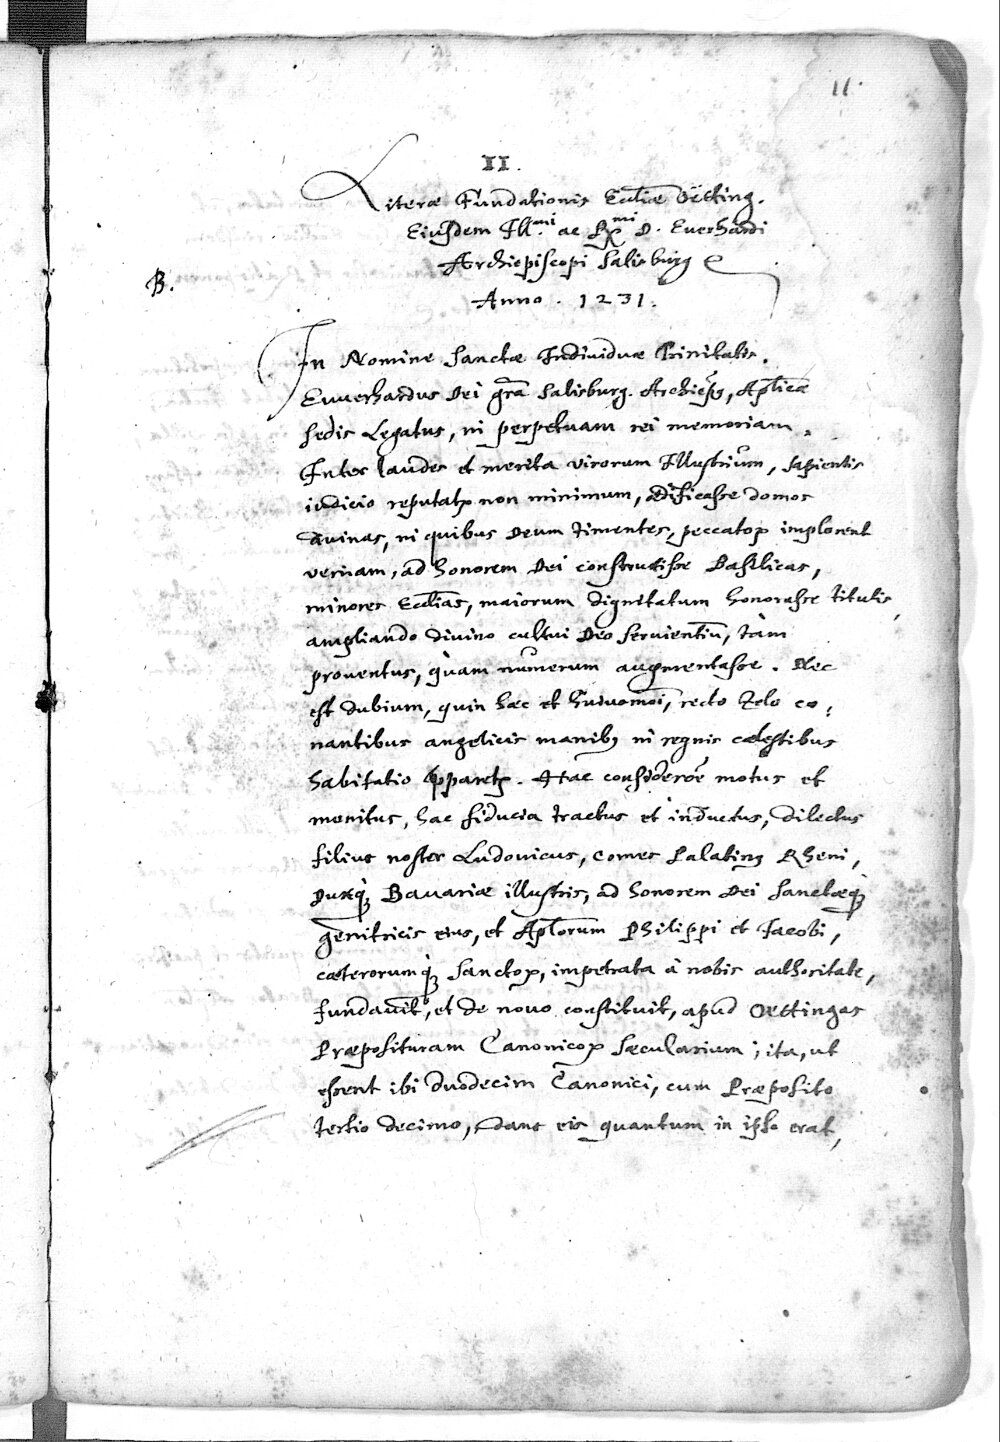 11.
II.
Literæ Fundationis Eccliæ Oetting.
Eiusdem Ill.mi ac Rmi D. Everhardi
Archiepiscopi Salisburg
B.
Anno . 1231.
In Nomine Sanctæ Individuæ Trinitatis.
Euuerhardus Dei gr̃a Salisburg. Archiep̃s, Aplicæ
sedis Legatus, in perpetuam rei memoriam.
Inter laudes et merita virorum Illustrium, sapientis
iudicio reputatꝛ non minimum, ædificasse domos
divinas, in quibus Deum timentes, peccatoꝝ implorent
veniam, ad honorem Dei construxisse Basilicas,
minores Ecclias, maiorum dignitatum honorasse titulis,
ampliando divino cultui Deo servientiũ, tàm
proventus, quàm numerum augmentasse. Nec
est dubium, quin hæc et huiuõmoi, recto zelo co:
nantibus angelicis manibꝰ in regnis cælestibus
habitatio ꝑparetꝛ. Hac consideroẽ motus et
monitus, hac fiducia tractus et inductus, dilectus
filius noster Ludovicus, comes Palatinꝰ Rheni,
Duxq̀ꝫ Bavariæ illustris, ad honorem Dei Sanctæq̀ꝫ
genitricis eius, et Apl̃orum Philippi et Jacobi,
cæterorumq̀ꝫ Sanctoꝝ, impetrata à nobis authoritate,
fundavit, et de novo constituit, apud Oettingas
Præposituram Canonicoꝝ sæcularium; ita, ut
essent ibi duodecim Canonici, cum Præposito
tertio decimo, dans eis quantum in ipso erat,